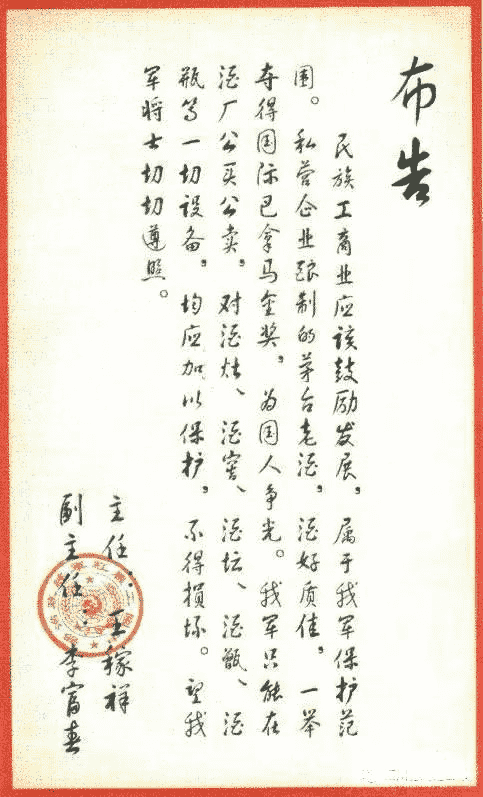 布告
民族工商业应该鼓励发展，属于我军保护范
围。私营企业酿制的茅台老酒，酒好质佳，一举
夺得国际巴拿马金奖，为国人争光。我军只能在
酒厂公买公卖，对酒灶、酒窖、酒坛、酒甑、酒
瓶等一切设备，均应加以保护，不得损坏。望我
军将士切切遵照。
主任：王稼祥
副主任：李富春